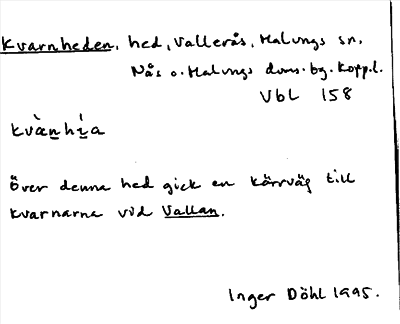 Kvarnheden, hed, Vallerås, Malungs sn,
Nås o. Malungs doms. bg. Kopp.l.
Vbl 158
kvà̀n̲hí̲a
Över denna hed gick en körrväg till
kvarnarna vid Vallan.
Inger Döhl 1995.